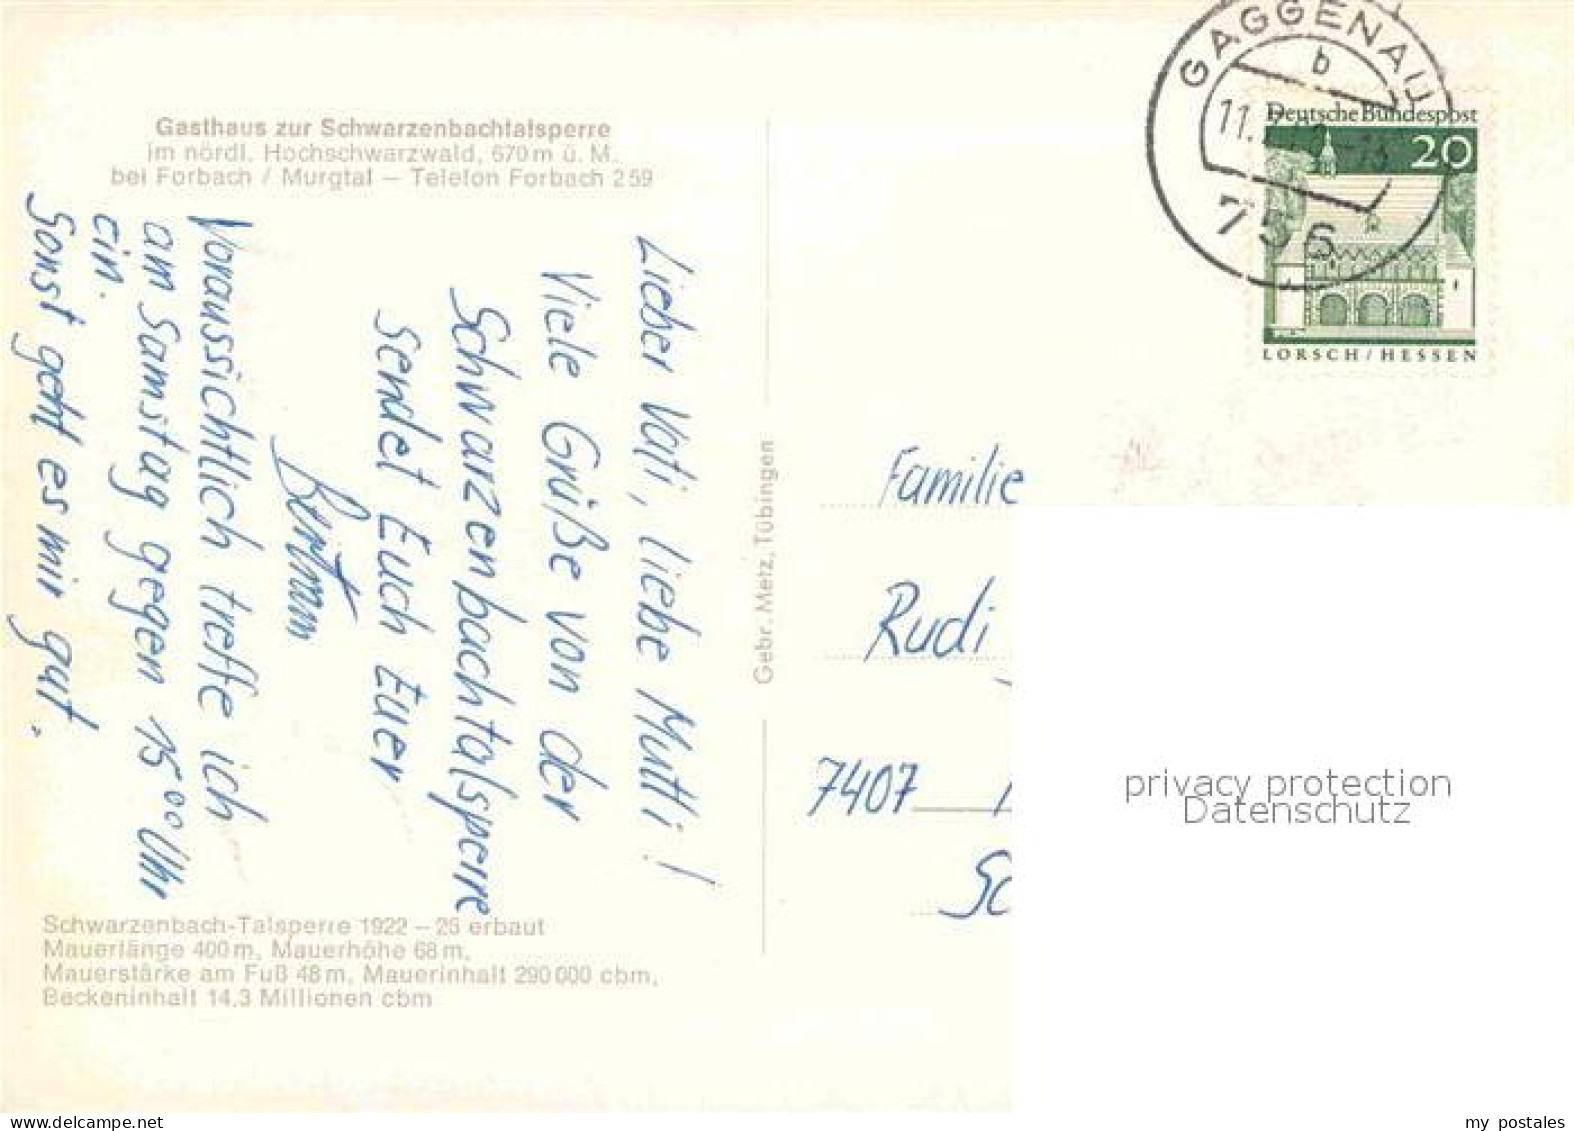 Gasthaus zur Schwarzenbachtalsperre
im nördl. Hochschwarzwald, 670 m ü. M.
bei Forbach / Murgtal – Telefon Forbach 259
Lieber Vati, liebe Mutti!
Viele Grüße von der
Schwarzenbachtalsperre
sendet Euch Euer
Voraussichtlich treffe ich
am Samstag gegen 15⁰⁰ Uhr
ein.
Sonst geht es mir gut.
Schwarzenbach-Talsperre 1922 – 26 erbaut
Mauerlänge 400 m, Mauerhöhe 68 m,
Mauerstärke am Fuß 48 m, Mauerinhalt 290 000 cbm,
Beckeninhalt 14,3 Millionen cbm
Gebr. Metz, Tübingen
GAGGENAU
b
11.
756
Deutsche Bundespost
20
LORSCH / HESSEN
Familie
Rudi
7407
privacy protection
Datenschutz
delcampe.net
my_postales